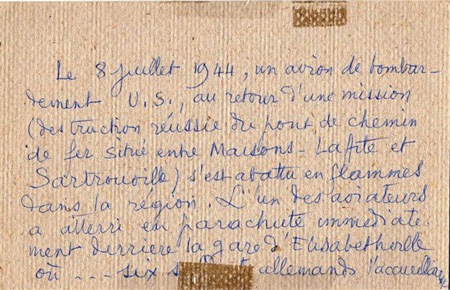 Le 8 juillet 1944, un avion de bombar-
dement U.S., au retour d'une mission
(destruction réussie du pont de chemin
de fer situé entre Maisons-Lafite et
Sartrouville) s'est abattu en flammes
dans la région. L'un des aviateurs
a atterri en parachute immédiate-
ment derrière la gare d'Elisabethville
où --- six allemands l'accueillai